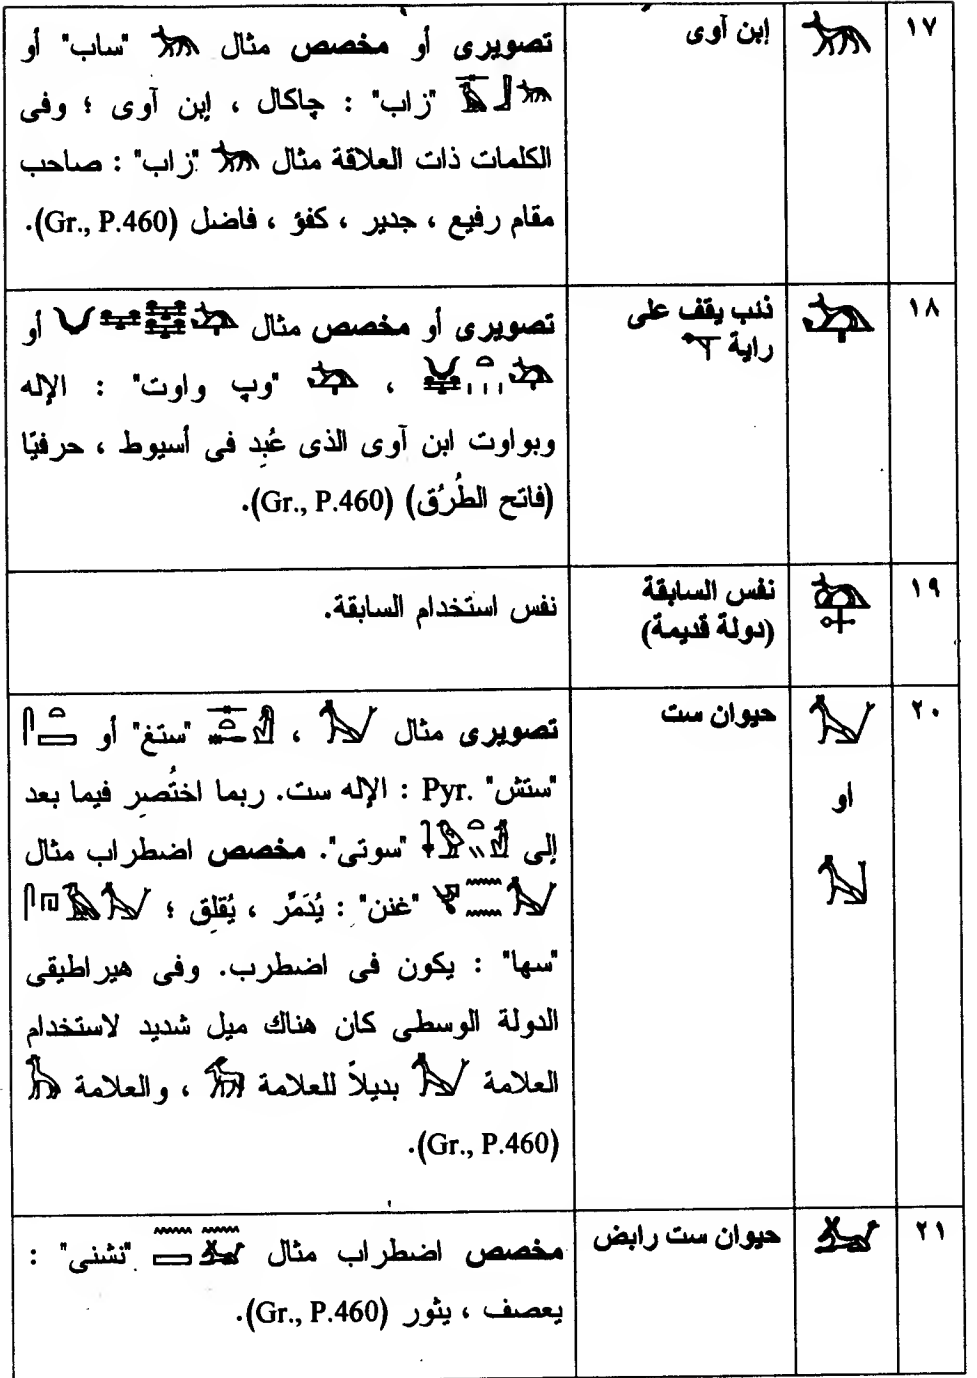 ١٧
إبن آوى
تصويرى أو مخصص مثال 𓃥 "ساب" أو
"زاب" : چاكال ، إبن آوى ؛ وفى
الكلمات ذات العلاقة مثال 𓃥 "زاب" : صاحب
مقام رفيع ، جدير ، كفؤ ، فاضل (Gr., P.460).
١٨
ذئب يقف على
راية
تصويرى أو مخصص مثال أو
، "وپ واوت" : الإله
وبواوت ابن آوى الذى عُبِد فى أسيوط ، حرفيًا
(فاتح الطُرُق) (Gr., P.460).
١٩
نفس السابقة
(دولة قديمة)
نفس استخدام السابقة.
٢٠
أو
حيوان ست
تصويرى مثال ، "ستغ" أو
"ستش" Pyr. : الإله ست. ربما اختُصِر فيما بعد
إلى "سوتى". مخصص اضطراب مثال
"غنن" : يُدَمَّر ، يُقلِق ؛
"سها" : يكون فى اضطرب. وفى هيراطيقى
الدولة الوسطى كان هناك ميل شديد لاستخدام
العلامة بديلاً للعلامة ، والعلامة
(Gr., P.460).
٢١
حيوان ست رابض
مخصص اضطراب مثال "نشنى" :
يعصف ، يثور (Gr., P.460).